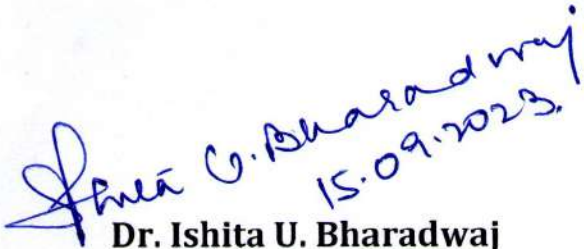 Ishita U. Bharadwaj
15.09.2023.
Dr. Ishita U. Bharadwaj